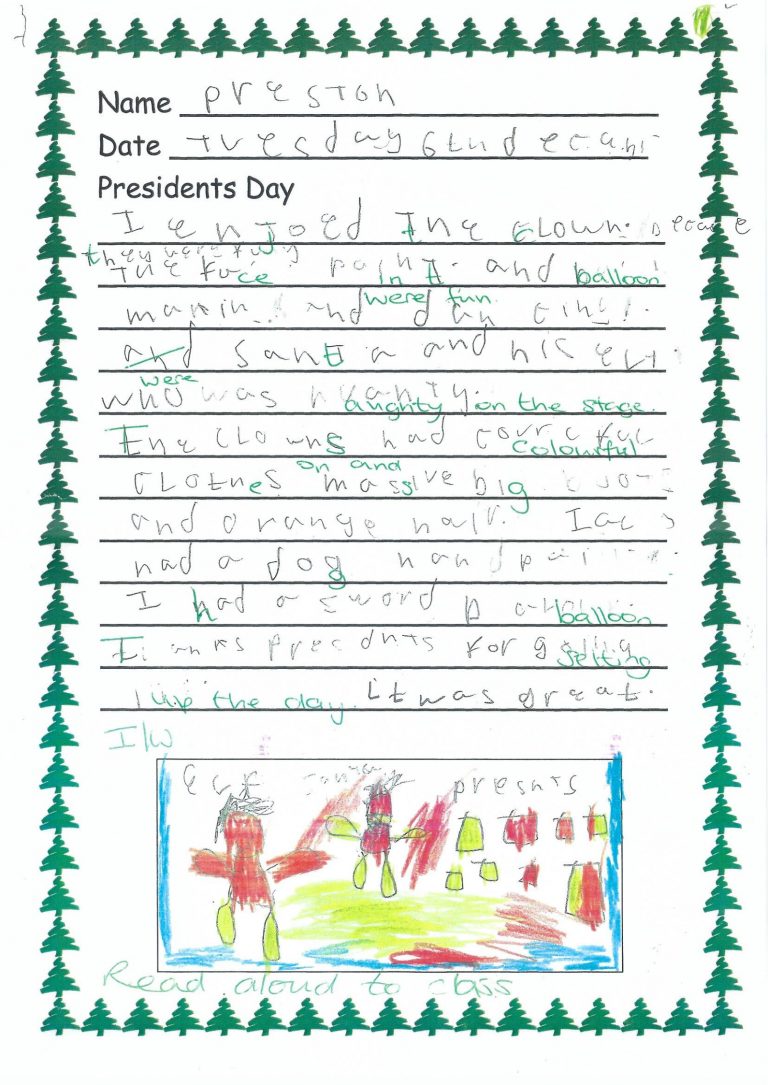 Name Preston
Date Tuesday 6th december
Presidents Day
I enjoed the clowns because
they were funy
The face paint. in t and balloon
were fun
makin and dancing.
and santa and his elf
were
who was naughty on the stage.
The clowns had colourful
on and
clothes massive big boots
and orange hair. I als
had a dog hand
I had a sword balloon
Thanks presdnts for getting
up the day. it was great.
I/W
elf presnts
Read aloud to class